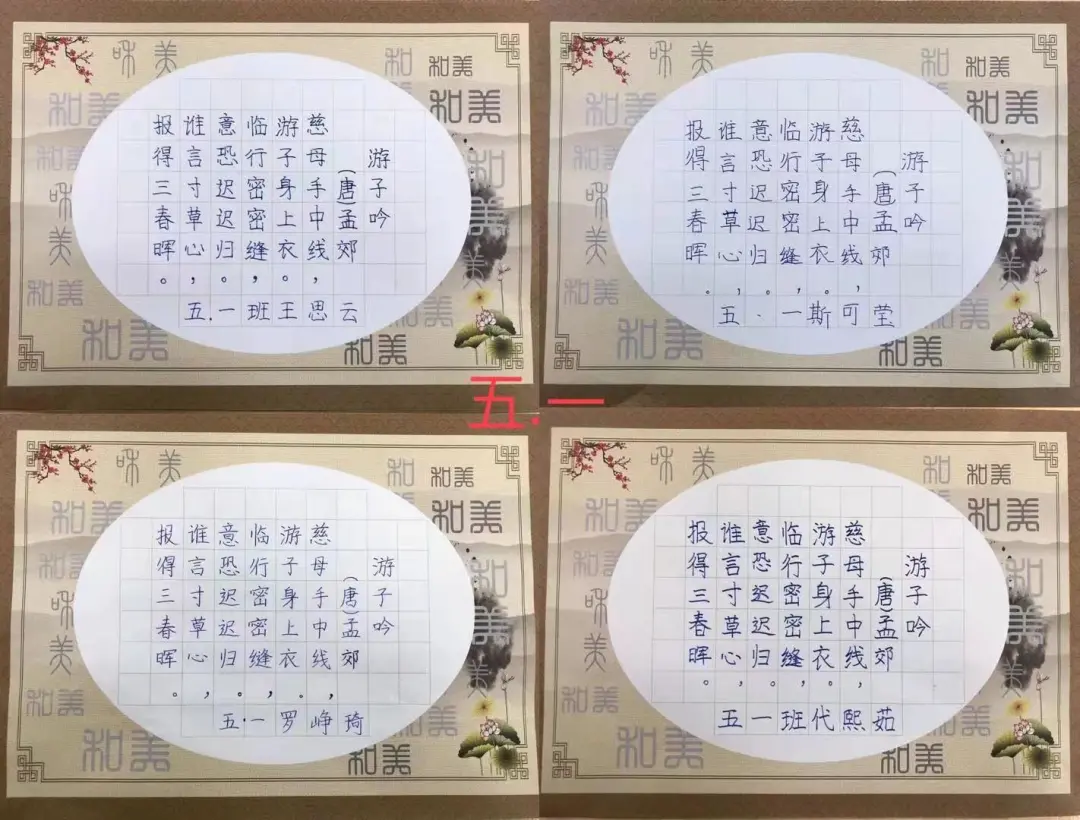 和美
和美
和美
游子吟
(唐)孟郊
慈母手中线，
游子身上衣。
临行密密缝，
意恐迟迟归。
谁言寸草心，
报得三春晖。
五.一班王思云
和美
和美
和美
和美
和美
游子吟
(唐)孟郊
慈母手中线，
游子身上衣。
临行密密缝，
意恐迟迟归。
谁言寸草心，
报得三春晖。
五.一斯可莹
和美
和美
五.一
和美
和美
和美
游子吟
(唐)孟郊
慈母手中线，
游子身上衣。
临行密密缝，
意恐迟迟归。
谁言寸草心，
报得三春晖。
五.一罗峥琦
和美
和美
和美
和美
和美
游子吟
(唐)孟郊
慈母手中线，
游子身上衣。
临行密密缝，
意恐迟迟归。
谁言寸草心，
报得三春晖。
五一班代熙茹
和美
和美